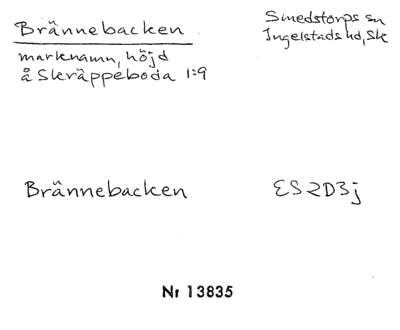 Brännebacken
Smedstorps sn
Ingelstads hd, Sk
marknamn, höjd
å Skräppeboda 1:9
Brännebacken
ES2D3j
Nr 13835